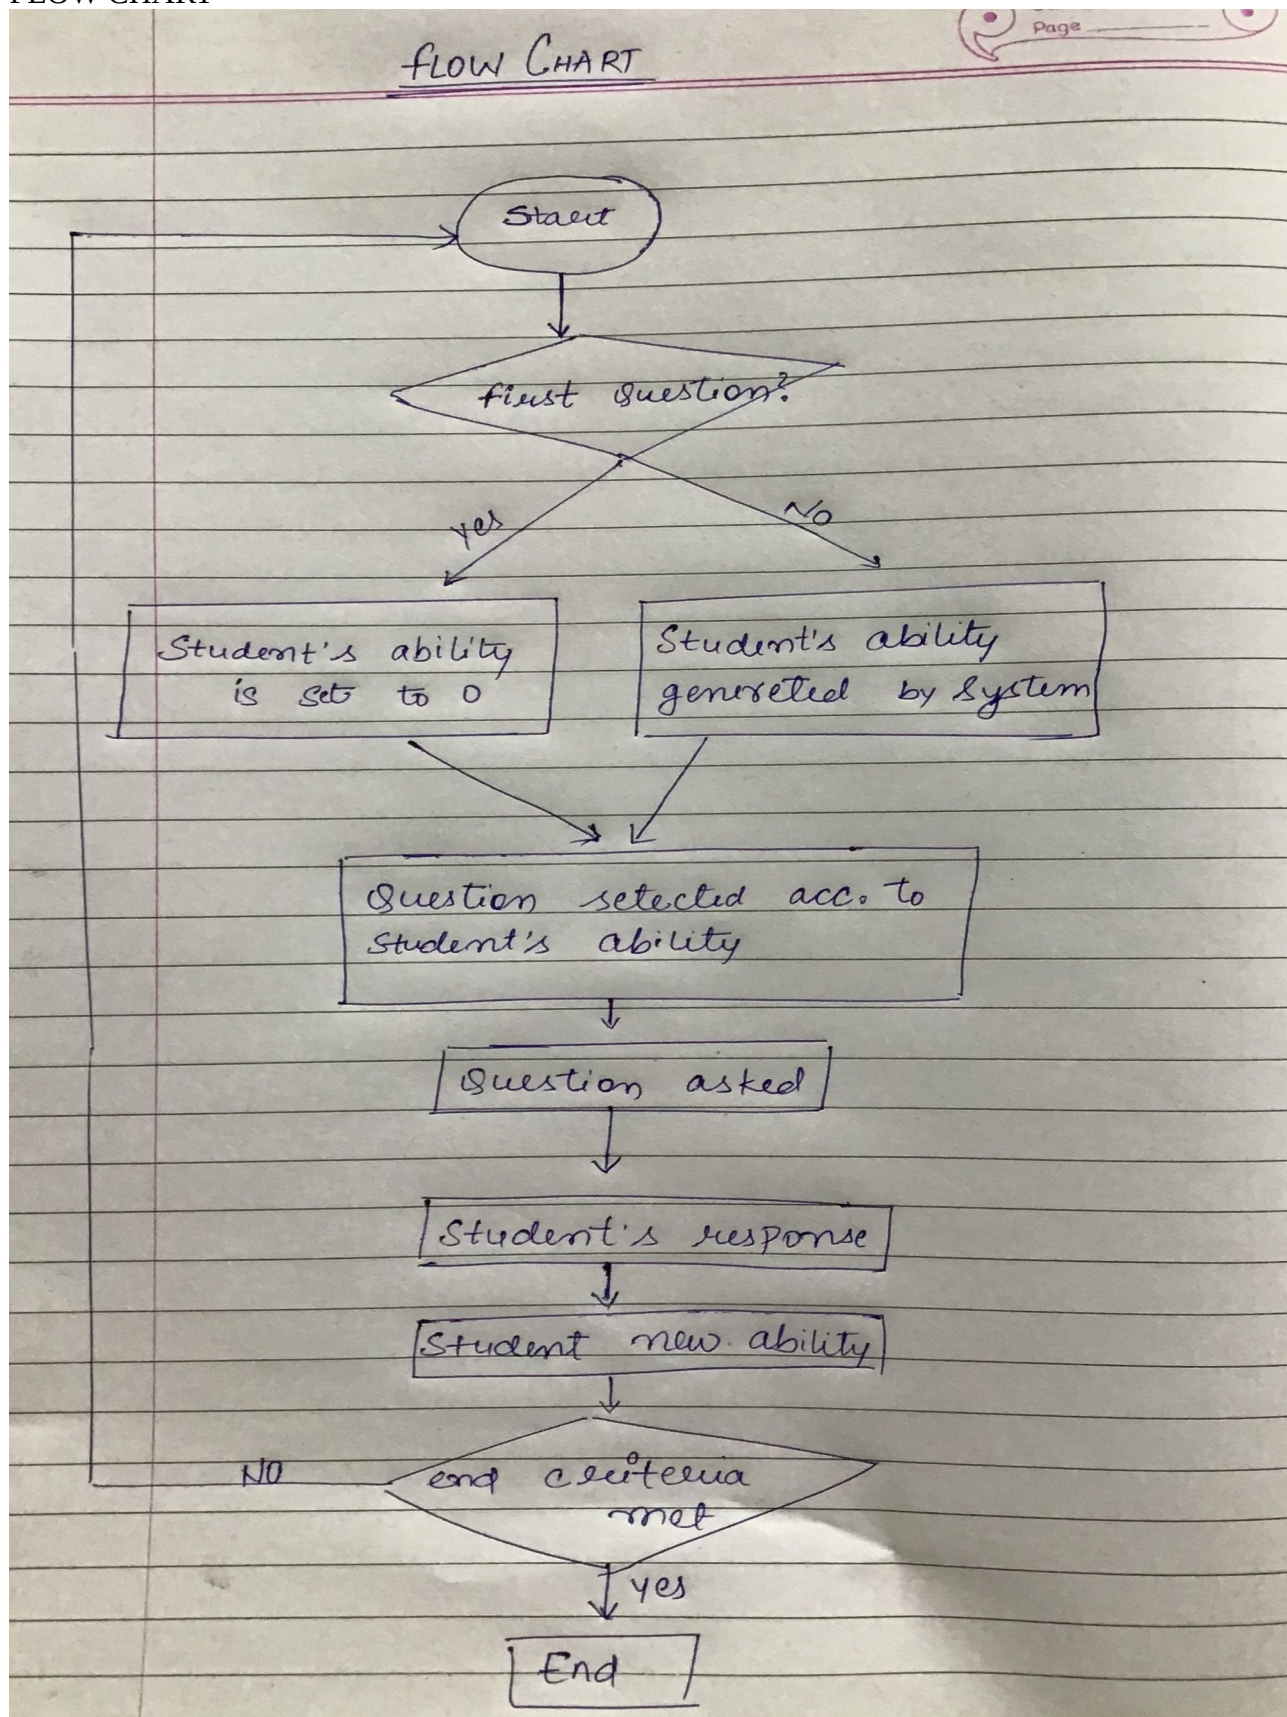 FLOW CHART
Page
FLOW CHART
Start
first question?
yes
No
Student's ability
is set to 0
Student's ability
genereted by system
Question setected acc. to
student's ability
Question asked
Student's response
Student new ability
NO
end criteria
met
yes
End